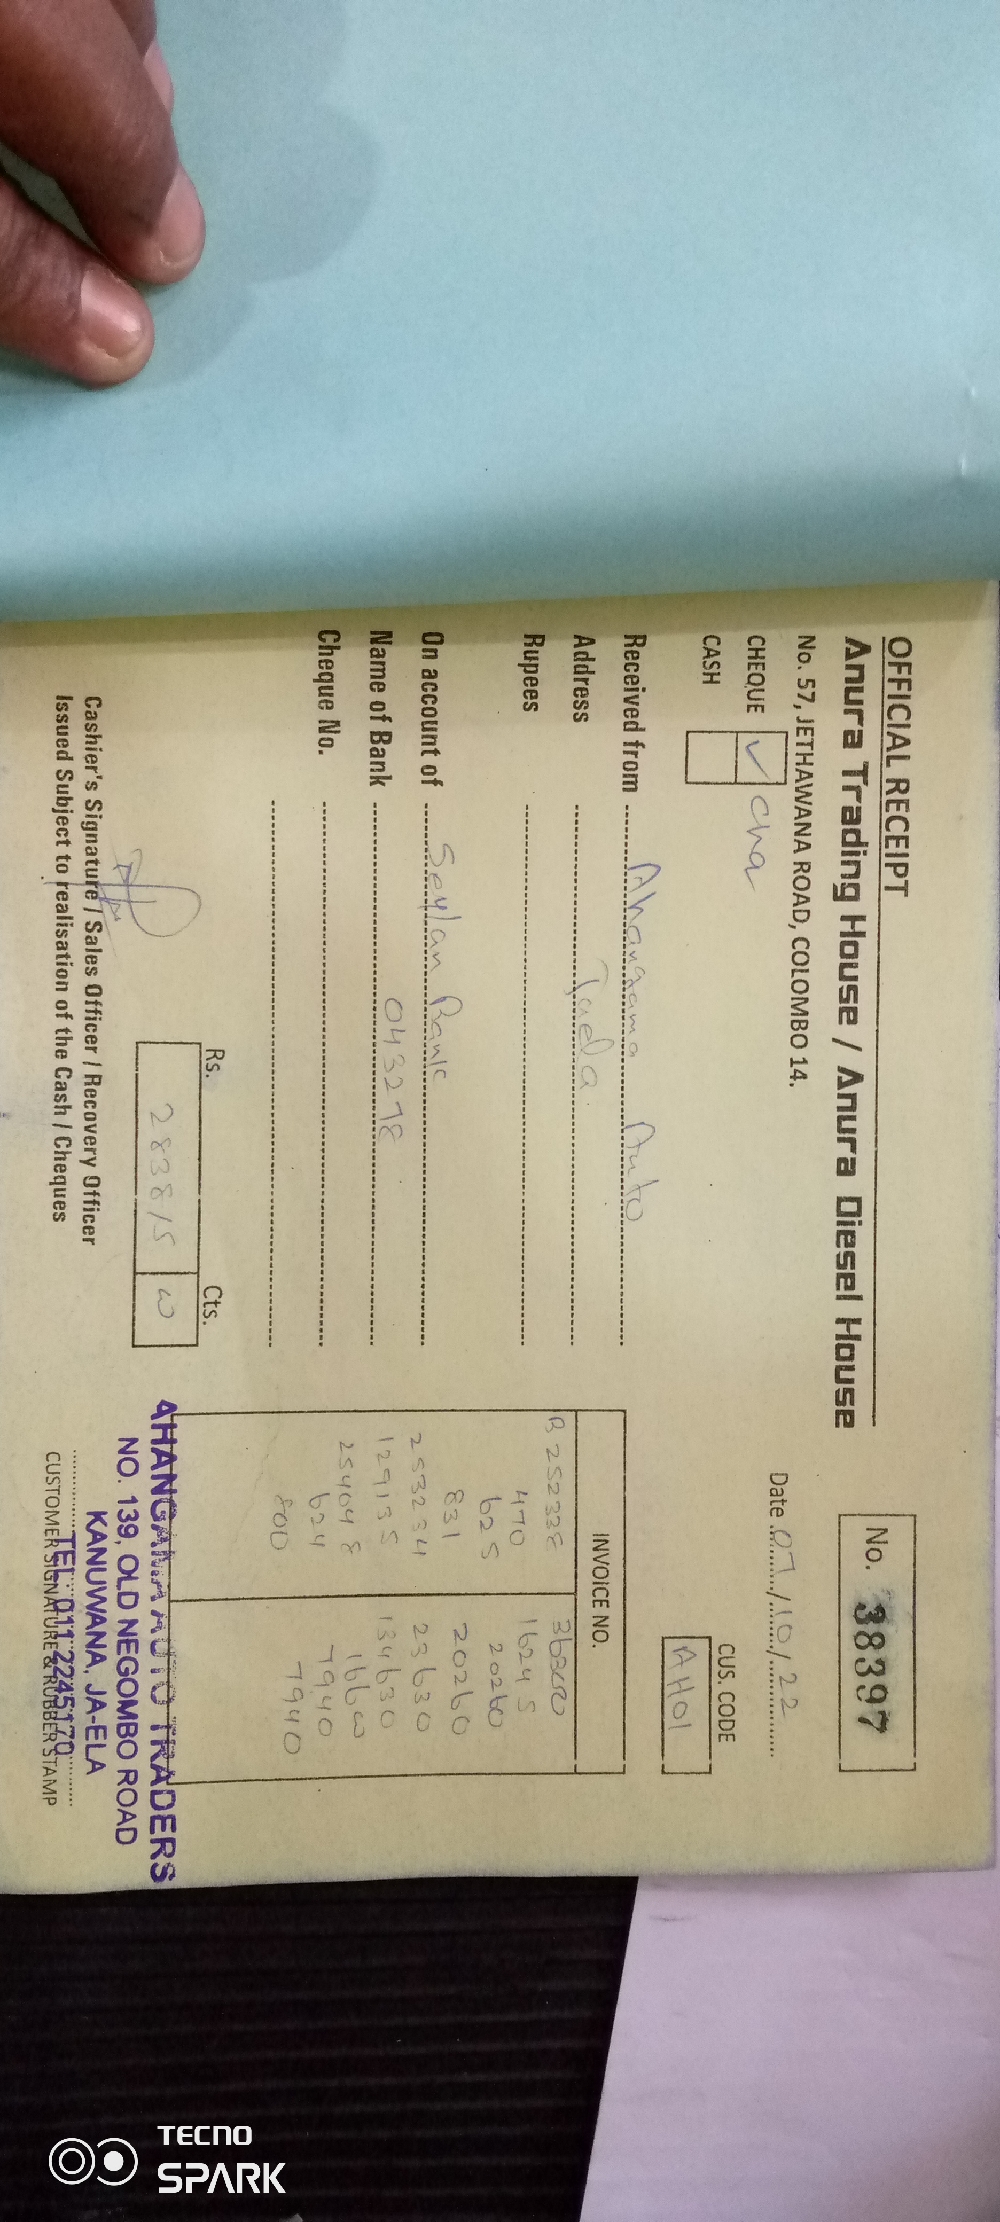 OFFICIAL RECEIPT
Anura Trading House / Anura Diesel House
No. 57, JETHAWANA ROAD, COLOMBO 14.
No. 38397
Date 07/10/22
CHEQUE ✓ Cha
CASH
CUS. CODE
AH01
Received from Ahangama Auto
Address Jaela.
Rupees
On account of Seylan Bank
Name of Bank 043278
Cheque No.
INVOICE NO.
B 252338
470 16245
625 20260
831 20260
253234 23630
129135 134630
254048
624 7940
800 7940
Rs. Cts.
283815
Cashier's Signature / Sales Officer / Recovery Officer
Issued Subject to realisation of the Cash / Cheques
AHANGAMA AUTO TRADERS
NO. 139, OLD NEGOMBO ROAD
KANUWANA, JA-ELA
TEL: 011 2245170
CUSTOMER SIGNATURE & RUBBER STAMP
TECNO
SPARK